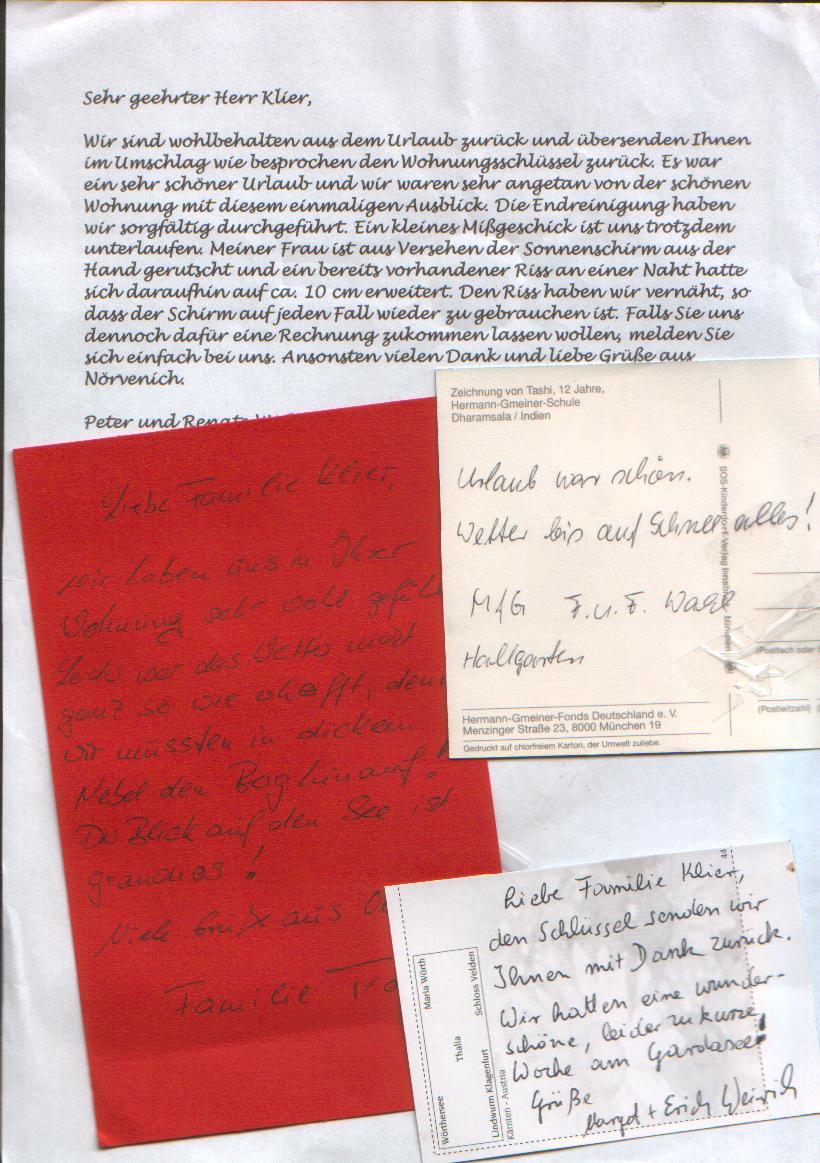 Sehr geehrter Herr Klier,
Wir sind wohlbehalten aus dem Urlaub zurück und übersenden Ihnen
im Umschlag wie besprochen den Wohnungsschlüssel zurück. Es war
ein sehr schöner Urlaub und wir waren sehr angetan von der schönen
Wohnung mit diesem einmaligen Ausblick. Die Endreinigung haben
wir sorgfältig durchgeführt. Ein kleines Mißgeschick ist uns trotzdem
unterlaufen. Meiner Frau ist aus Versehen der Sonnenschirm aus der
Hand gerutscht und ein bereits vorhandener Riss an einer Naht hatte
sich daraufhin auf ca. 10 cm erweitert. Den Riss haben wir vernäht, so
dass der Schirm auf jeden Fall wieder zu gebrauchen ist. Falls Sie uns
dennoch dafür eine Rechnung zukommen lassen wollen, melden Sie
sich einfach bei uns. Ansonsten vielen Dank und liebe Grüße aus
Nörvenich.
Peter und Renate
Liebe Familie Klier,
wir haben uns in Ihrer
Wohnung sehr wohl gefühl
Leider war das Wetter nicht
ganz so wie erhofft, denn
wir mussten in dickem
Nebel den Berg hinauf!
Der Blick auf den See ist
grandios!
Viele Grüße aus
Familie
Zeichnung von Tashi, 12 Jahre,
Hermann-Gmeiner-Schule
Dharamsala / Indien
Urlaub war schön.
Wetter bis auf Schnee alles!
MfG F. u. F.
Hallgarten
SOS-Kinderdorf-Verlag Innsbruck, München
(Postfach oder
(Postleitzahl)
Hermann-Gmeiner-Fonds Deutschland e. V.
Menzinger Straße 23, 8000 München 19
Gedruckt auf chlorfreiem Karton, der Umwelt zuliebe.
44
Liebe Familie Klier,
den Schlüssel senden wir
Ihnen mit Dank zurück.
Wir hatten eine wunder-
schöne, leider zu kurze,
Woche am Gardasee
Grüße
Margot + Erich Weinrich
Maria Wörth
Schloss Velden
Thalia
Wörthersee
Lindwurm Klagenfurt
Kärnten - Austria